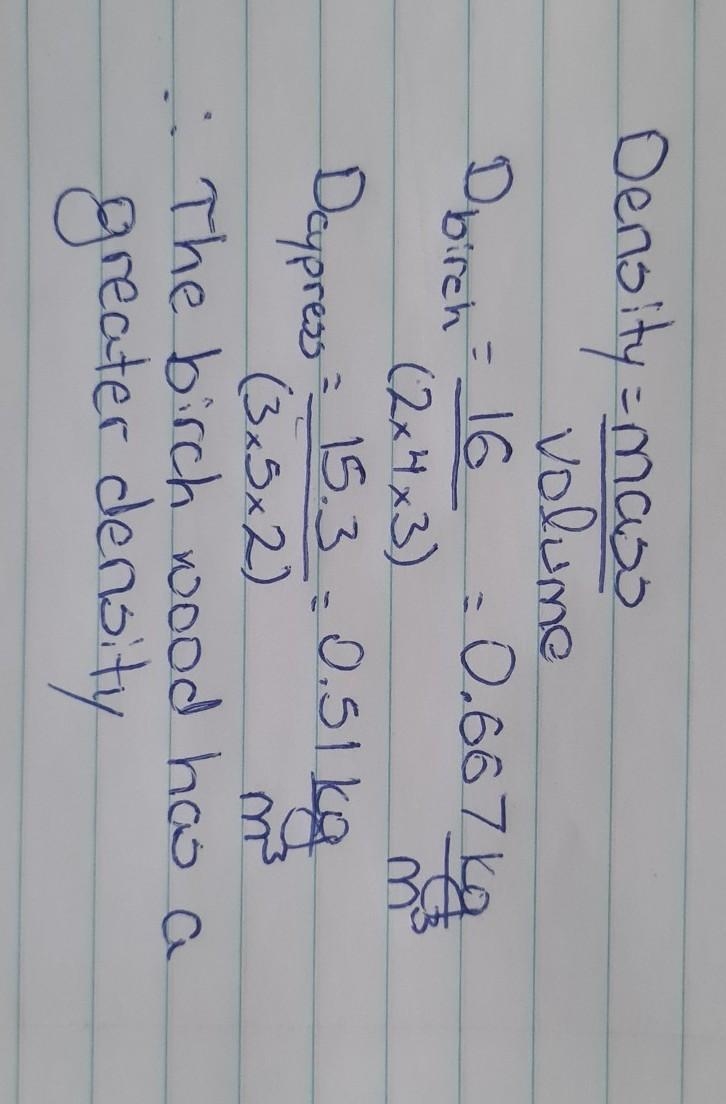 Density = mass
volume
Dbirch = 16 = 0.667 kg
(2×4×3) m³
Dcypress = 15.3 = 0.51 kg
(3×5×2) m³
∴ The birch wood has a
greater density